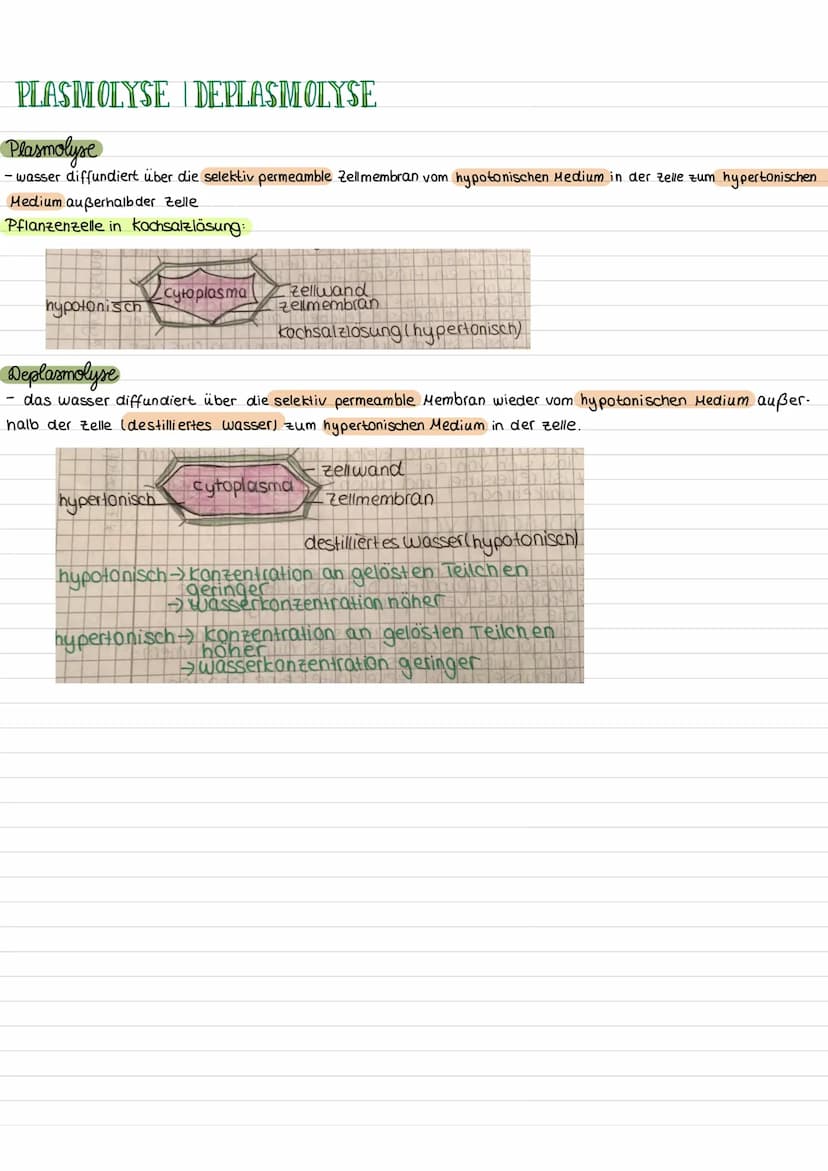 PLASMOLYSE | DEPLASMOLYSE
Plasmolyse
- wasser diffundiert über die selektiv permeamble Zellmembran vom hypotonischen Medium in der Zelle zum hypertonischen
Medium außerhalb der Zelle
Pflanzenzelle in Kochsalzlösung:
cytoplasma
zellwand
hypotonisch
zellmembran
Kochsalzlösung (hypertonisch)
Deplasmolyse
- das wasser diffundiert über die selektiv permeamble Membran wieder vom hypotonischen Medium außer-
halb der Zelle (destilliertes wasser) zum hypertonischen Medium in der zelle.
zellwand
cytoplasma
hypertonisch
zellmembran
destilliertes wasser (hypotonisch)
hypotonisch → Konzentration an gelösten Teilchen
geringer
→ wasserkonzentration höher
hypertonisch → Konzentration an gelösten Teilchen
höher
→ wasserkonzentration geringer